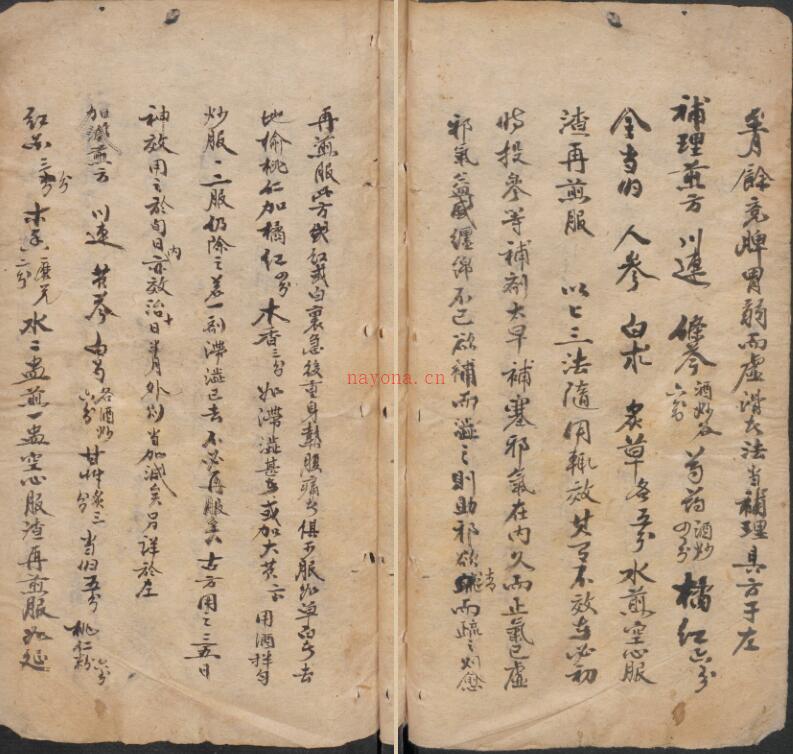 月餘竟脾胃弱而虛滑者法當補理其方于左
補理煎方 川連 條芩酒炒各六分 芍药酒炒四分 橘红六分
全当归 人参 白朮 炙草各五分 水煎空心服
渣再煎服 以上三法隨用輒效其有不效者必初
時投參等補劑太早補塞邪氣在內久而正氣已虛
邪氣益盛纏绵不已欲補而澁之則助邪欲清而疏之則愈
再煎服此方或红或白裏急後重身熱腹痛者俱可服如單白者去
地榆桃仁加橘红四分木香三分如滯澁甚者或加大黃二分用酒拌匀
炒服一二服仍除之若一剂滯澁已去不必再服矣 古方用之三五日
神效用之於旬日內亦效治十日半月外則当加減矣另詳於左
加減煎方 川連 黄芩 白芍各酒炒六分 甘艸炙三分 当归五分 桃仁粉六分
红花三分 木香磨兑二分 水二盅煎一盅空心服渣再煎服如延
nayona.cn